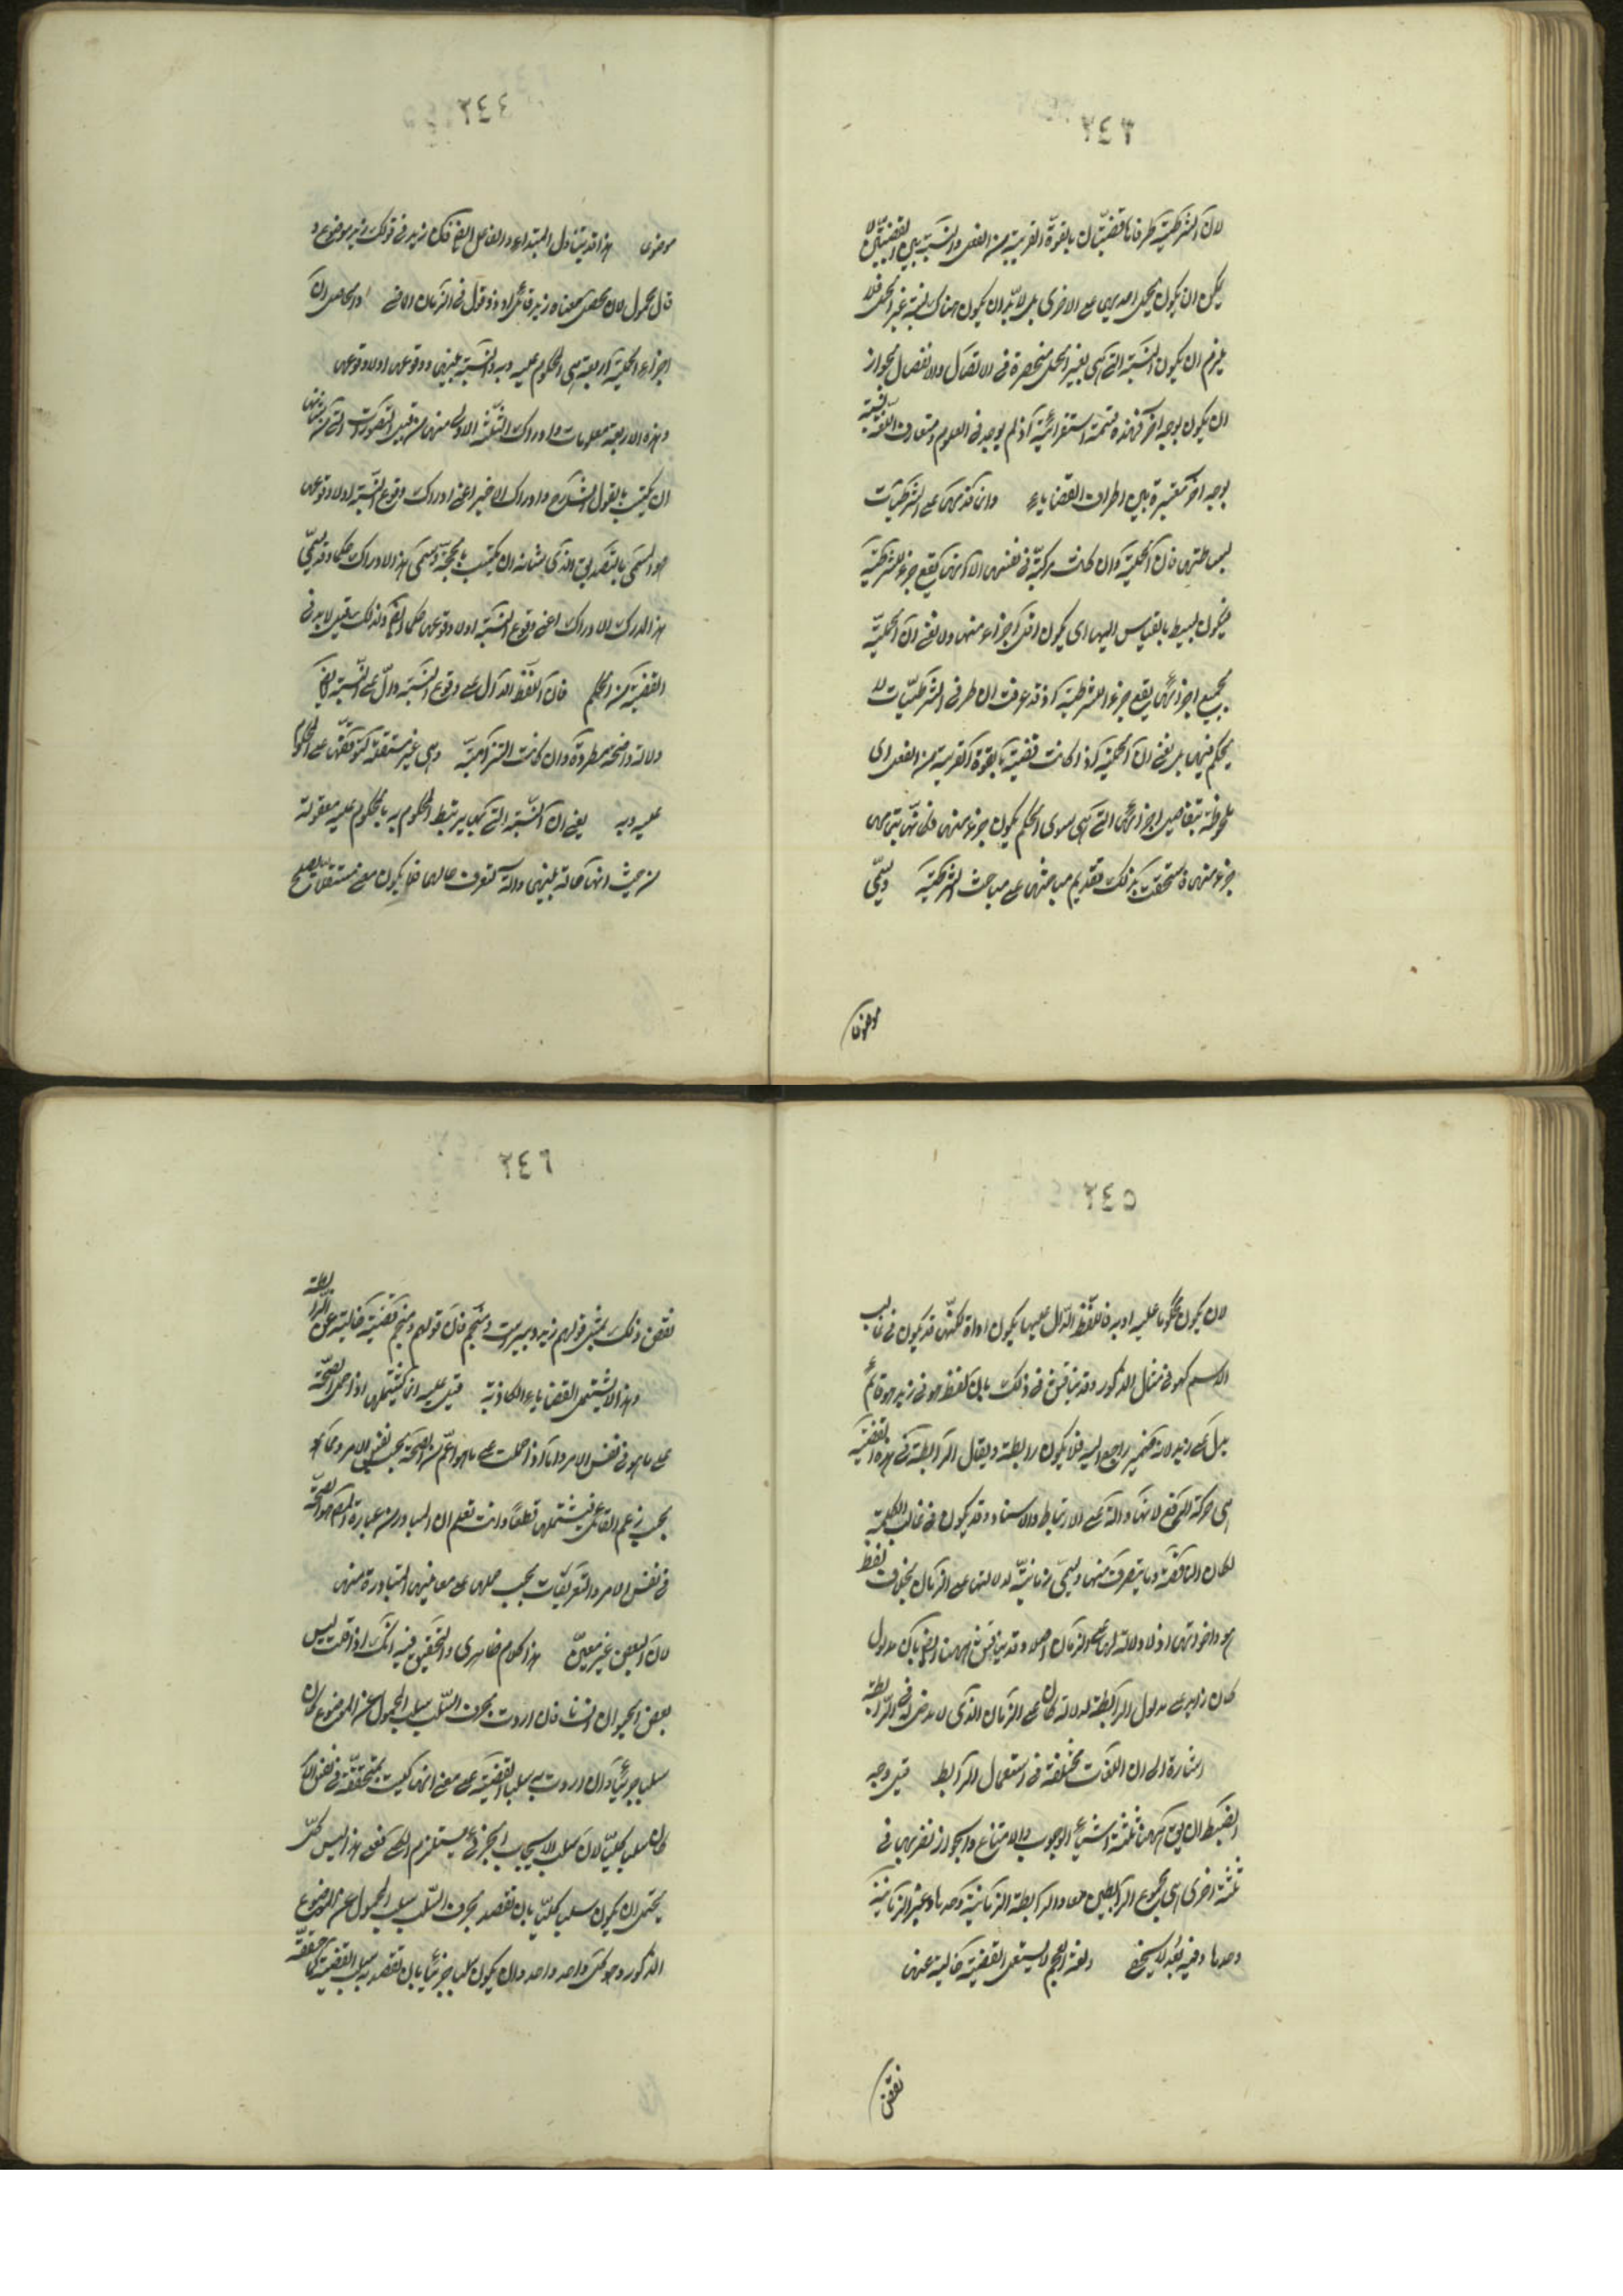 ٢٤٣
لان الشرطية طرفاها قضيتان بالقوة القريبة من الفعل والنسبة بين القضيتين لا
يمكن ان يكون بحمل احديهما على الاخرى بل لا بد ان يكون هناك نسبة غير الحمل فلا
يلزم ان يكون النسبة التى هى بغير الحمل منحصرة فى الاتصال والانفصال لجواز
ان يكون بوجه اخر فهذه قسمة استقرائية اذ لم يوجد فى العلوم ومتعارف اللغة نسبة
بوجه اخر معتبرة بين اطراف القضايا وانما قدمها على الشرطيات
لبساطتها فان الحملية وان كانت مركبة فى نفسها الا انها تقع جزء للشرطية
فيكون بسيطا بالقياس اليها اى يكون اقل اجزاء منها ولا نعنى ان الحملية
بجميع اجزائها يقع جزءا للشرطية اذ قد عرفت ان طرفى الشرطيات لا
يحكم فيهما بل نعنى ان الحملية اذا كانت قضية بالقوة القريبة من الفعل اى
ملحوظة بتفاصيل اجزائها التى هى سوى الحكم يكون جزء منها فكانها بتمامها
جزء منها فاستحقت بذلك تقديم مباحثها على مباحث الشرطية ويسمى
موضوعا
٢٤٤
موضوعا هذا قد يتناول المبتداء والفاعل ايضا فان زيد فى قولك زيد موضوع و
قال محمول لان محصل معناه زيد قائل او ذو قول فى الزمان الماضى والحاصل ان
اجزاء الحملية اربعة هى المحكوم عليه وبه والنسبة بينهما ووقوعها اولا وقوعها
وهذه الاربعة معلومات وادراك الثلثة الاول منها من قبيل التصورات التى من شانها
ان يكتسب بالقول الشارح وادراك الاخير اعنى ادراك وقوع النسبة اولا وقوعها
هو المسمى بالتصديق الذى من شانه ان يكتسب بالحجة ويسمى هذا الادراك حكما وقد يسمى
هذا المدرك الادراك اعنى وقوع النسبة اولا وقوعها حكما ايضا ولذلك قيل لا بد فى
القضية من الحكم فان اللفظ الدال على وقوع النسبة دال على النسبة ايضا
دلالة واضحة مطردة وان كانت التزامية وهى غير مستقلة لتوقفها على المحكوم
عليه وبه يعنى ان النسبة التى بها يرتبط المحكوم به بالمحكوم عليه معقولة
من حيث انها حالة بينهما والة لتعرف حالهما فلا يكون معنى مستقلا يصلح
٢٤٥
لان يكون محكوما عليه او به فاللفظ الدال عليها يكون اداة لكنها قد يكون فى قالب
الاسم كهو فى مثال المذكور وقد يناقش فى ذلك بان لفظ هو فى زيد هو قائم
يدل على زيد لانه ضمير راجع اليه فلا يكون رابطة ويقال الرابطة فى هذه القضية
هى حركة الرفع لانها دالة على الارتباط والاسناد وقد يكون فى قالب الكلمة
لكان الناقصة وما يتصرف منها ويسمى زمانية لدلالتها على الزمان بخلاف لفظ
هو واخواتها اذ لا دلالة لها على الزمان اصلا وقد يناقش ههنا ايضا بان مدلول
كان زايد على مدلول الرابطة لدلالة كان على الزمان الذى لا مدخل له فى الرابطة
اشارة الى ان اللغات مختلفة فى استعمال الرابط قيل وجه
الضبط ان يق ههنا ثلثة اشياء الوجوب والامتناع والجواز نضربها فى
ثلثة اخرى اى مجموع الرابطين معا والرابطة الزمانية وحدها وغير الزمانية
وحدها وفيه بعد لا يخفى ولغة العجم لا يستعمل القضية خالية عنها
نقض
٢٤٦
نقض ذلك بمثل قولهم زيد دبيرست ومنجم فان قولهم ومنجم قضية خالية عن الرابطة
وهذا لا يشتمل القضايا الكاذبة قيل عليه انما يشتملها اذا حمل الصحة
على ما هو فى نفس الامر واما اذا حملت على ما هو اعم من الصحة بحسب نفس الامر ومما هو
بحسب زعم القائل فيشتملها قطعا وانت تعلم ان المتبادر من عبارة المص هو الصحة
فى نفس الامر والتعريفات يجب حملها على معانيها المتبادرة منها
لان البعض غير معين هذا كلام ظاهرى والتحقيق فيه انك اذا قلت ليس
بعض الحيوان انسانا فان اردت بحرف السلب سلب المحمول عن الموضوع كان
سلبا جزئيا وان اردت به سلب القضية على معنى انها ليست بمتحققة فى نفس الامر
كان سلبا كليا لان سلب الايجاب الجزئى مستلزم السلب الكلى فعلى هذا ليس كل
يحتمل ان يكون سلبا كليا بان تقصد بحرف السلب سلب المحمول عن الموضوع
المذكور وهو كل واحد واحد وان يكون سلبا جزئيا بان تقصد به سلب القضية متحققة